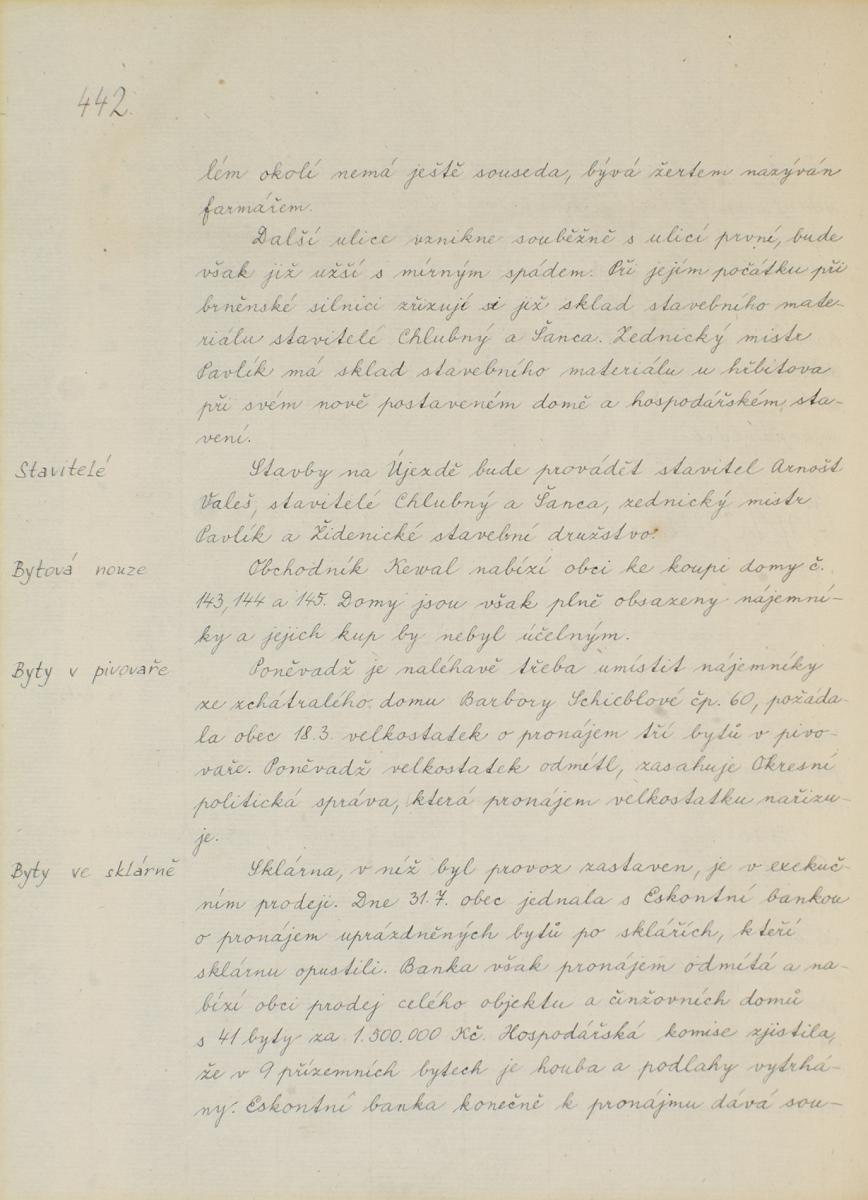 442.
lém okolí nemá ještě souseda, bývá žertem nazýván
farmářem.
Další ulice vznikne souběžně s ulicí první, bude
však již užší s mírným spádem. Při jejím počátku při
brněnské silnici zřizují si již sklad stavebního mate-
riálu stavitelé Chlubný a Šanca. Zednický mistr
Pavlík má sklad stavebního materiálu u hřbitova
při svém nově postaveném domě a hospodářském sta-
vení.
Stavitelé
Stavby na Újezdě bude provádět stavitel Arnošt
Valeš, stavitelé Chlubný a Šanca, zednický mistr
Pavlík a Židenické stavební družstvo.
Bytová nouze
Obchodník Kewal nabízí obci ke koupi domy č.
143, 144 a 145. Domy jsou však plně obsazeny nájemní-
ky a jejich kup by nebyl účelným.
Byty v pivovaře
Poněvadž je naléhavě třeba umístit nájemníky
ze zchátralého domu Barbory Schieblové čp. 60, požáda-
la obec 18.3. velkostatek o pronájem tří bytů v pivo-
vaře. Poněvadž velkostatek odmítl, zasahuje Okresní
politická správa, která pronájem velkostatku nařizu-
je.
Byty ve sklárně
Sklárna, v níž byl provoz zastaven, je v exekuč-
ním prodeji. Dne 31.7. obec jednala s Eskontní bankou
o pronájem uprázdněných bytů po sklářích, kteří
sklárnu opustili. Banka však pronájem odmítá a na-
bízí obci prodej celého objektu a činžovních domů
s 41 byty za 1.500.000 Kč. Hospodářská komise zjistila,
že v 9 přízemních bytech je houba a podlahy vytrhá-
ny. Eskontní banka konečně k pronájmu dává sou-